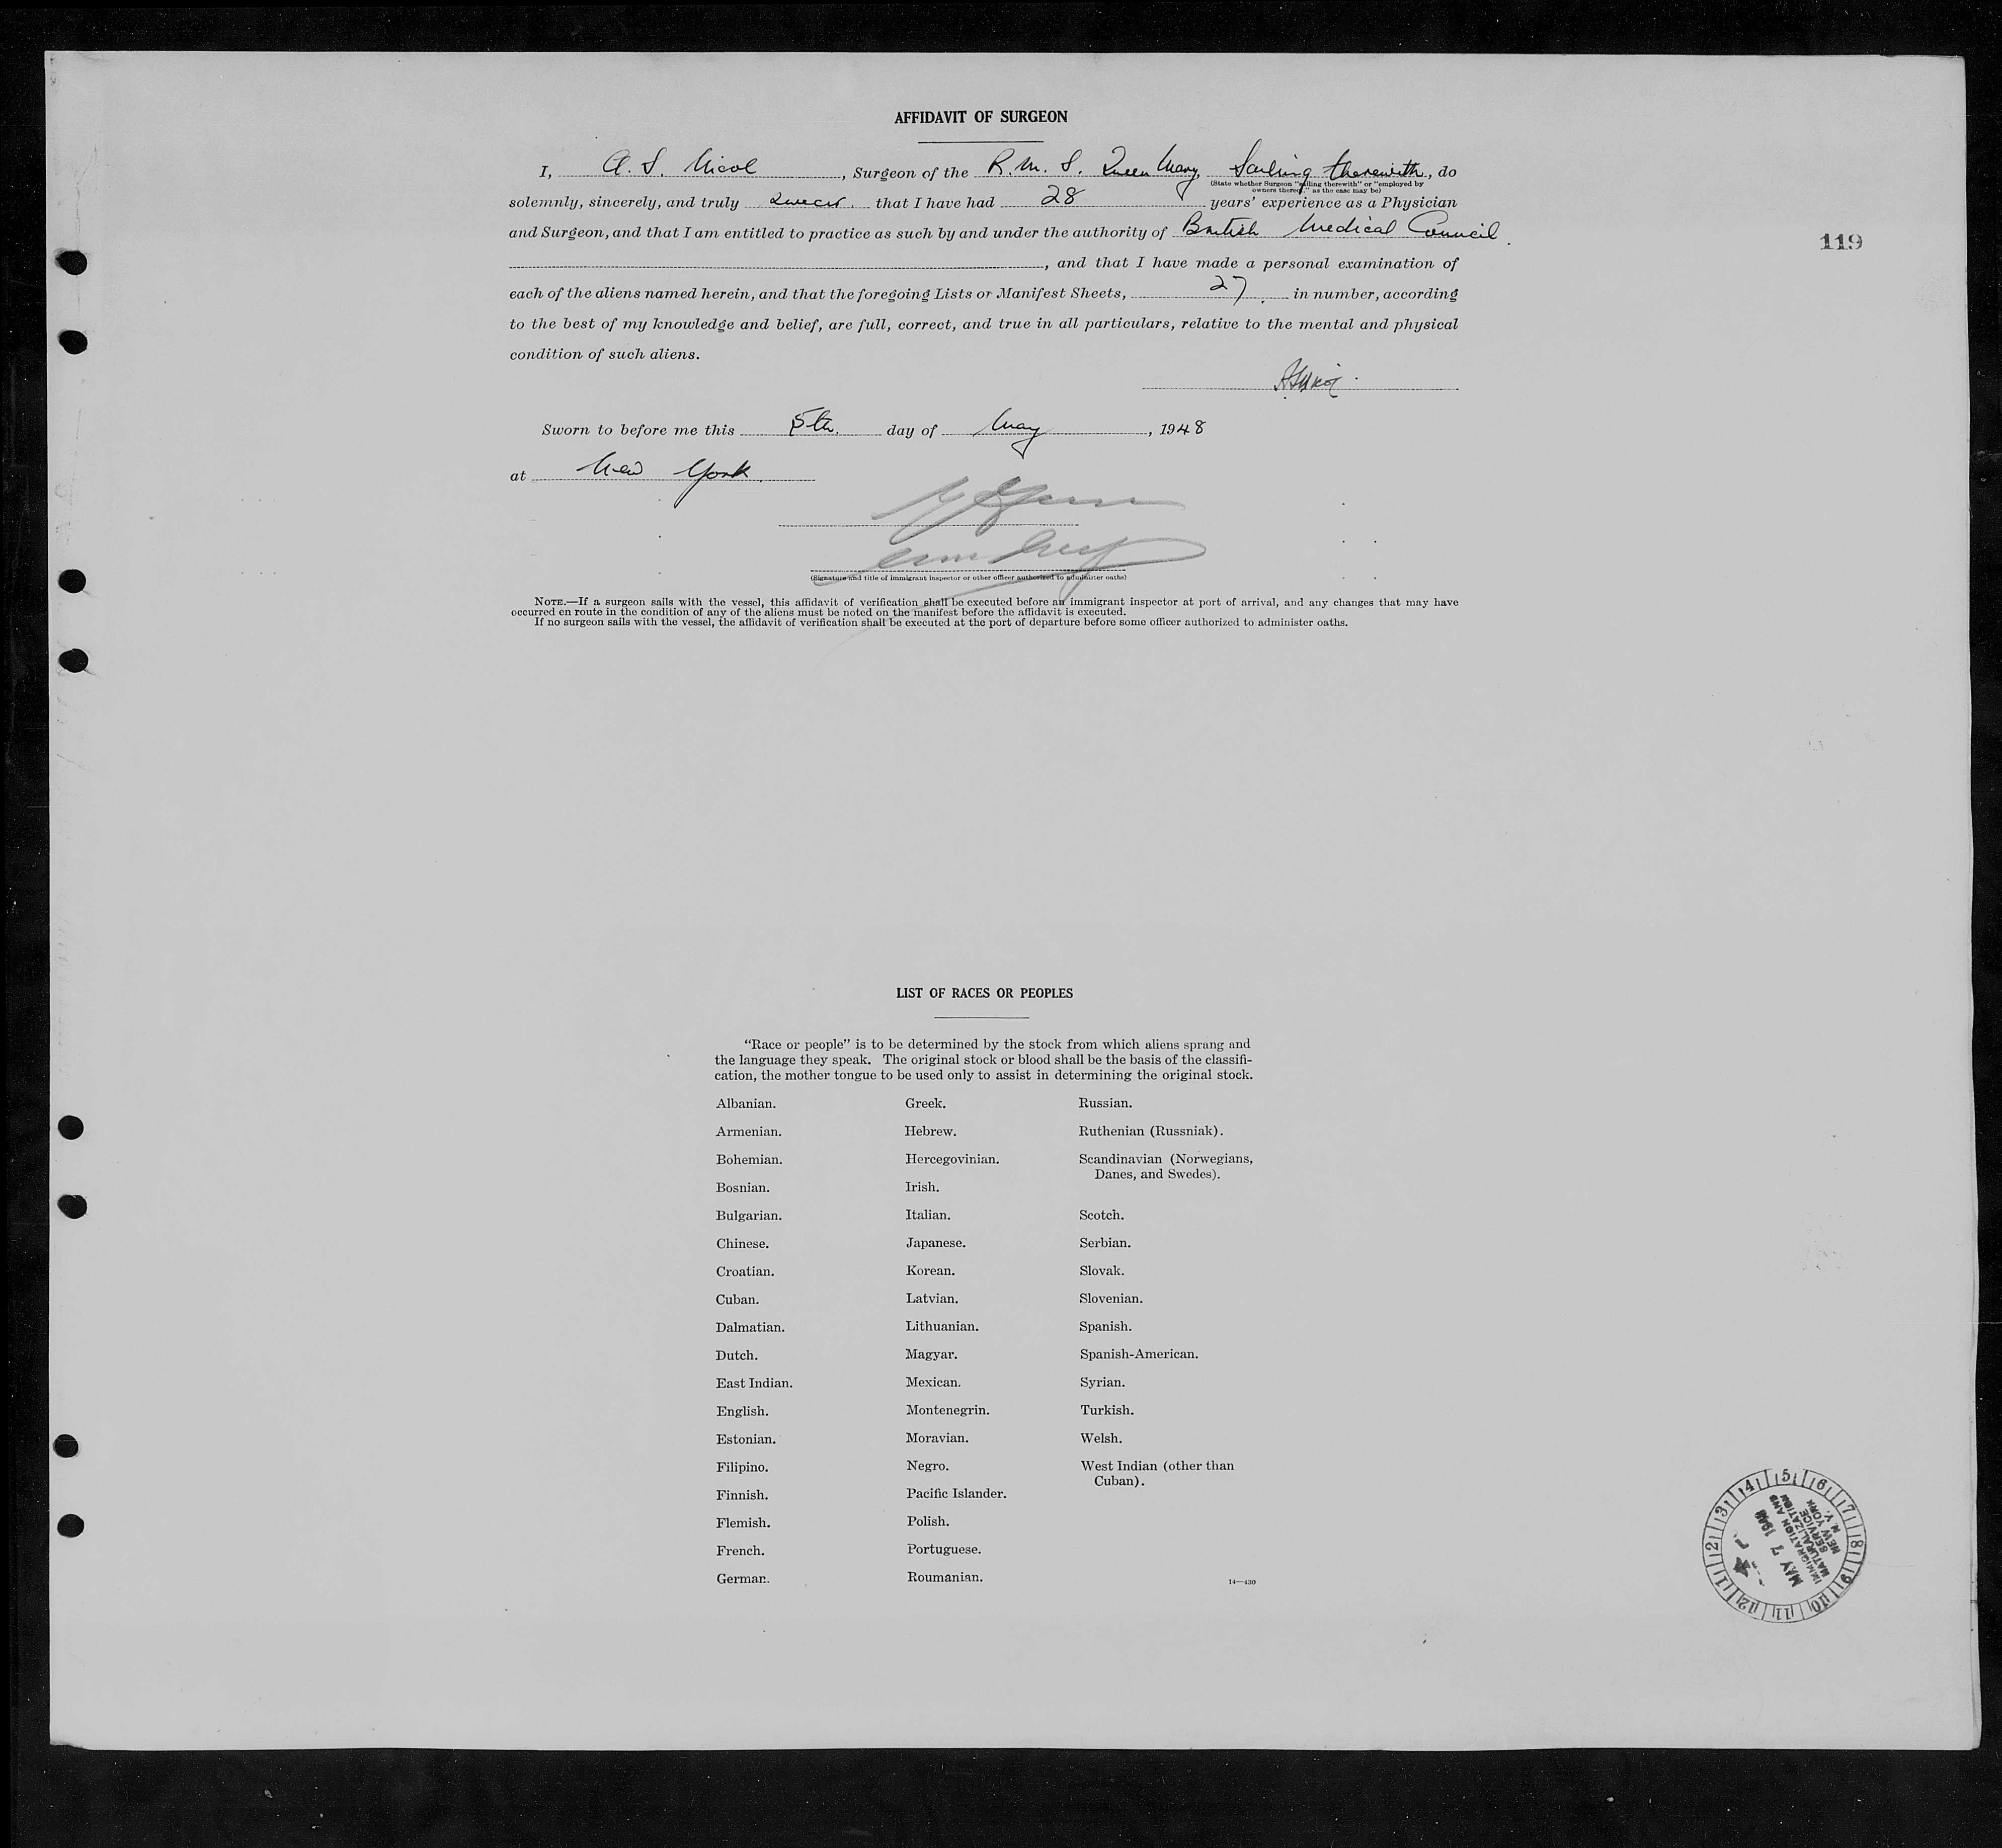 AFFIDAVIT OF SURGEON
I, A. S. Nicol, Surgeon of the R.M.S. Queen Mary, Sailing therewith, do
(State whether Surgeon "sailing therewith" or "employed by
owners thereof," as the case may be)
solemnly, sincerely, and truly swear that I have had 28 years' experience as a Physician
and Surgeon, and that I am entitled to practice as such by and under the authority of British Medical Council.
119
, and that I have made a personal examination of
each of the aliens named herein, and that the foregoing Lists or Manifest Sheets, 27 in number, according
to the best of my knowledge and belief, are full, correct, and true in all particulars, relative to the mental and physical
condition of such aliens.
Sworn to before me this 5th. day of May, 1948
at New York.
(Signature and title of immigrant inspector or other officer authorized to administer oaths)
NOTE.—If a surgeon sails with the vessel, this affidavit of verification shall be executed before an immigrant inspector at port of arrival, and any changes that may have
occurred en route in the condition of any of the aliens must be noted on the manifest before the affidavit is executed.
If no surgeon sails with the vessel, the affidavit of verification shall be executed at the port of departure before some officer authorized to administer oaths.
LIST OF RACES OR PEOPLES
"Race or people" is to be determined by the stock from which aliens sprang and
the language they speak. The original stock or blood shall be the basis of the classifi-
cation, the mother tongue to be used only to assist in determining the original stock.
Albanian.
Armenian.
Bohemian.
Bosnian.
Bulgarian.
Chinese.
Croatian.
Cuban.
Dalmatian.
Dutch.
East Indian.
English.
Estonian.
Filipino.
Finnish.
Flemish.
French.
German.
Greek.
Hebrew.
Hercegovinian.
Irish.
Italian.
Japanese.
Korean.
Latvian.
Lithuanian.
Magyar.
Mexican.
Montenegrin.
Moravian.
Negro.
Pacific Islander.
Polish.
Portuguese.
Roumanian.
Russian.
Ruthenian (Russniak).
Scandinavian (Norwegians,
Danes, and Swedes).
Scotch.
Serbian.
Slovak.
Slovenian.
Spanish.
Spanish-American.
Syrian.
Turkish.
Welsh.
West Indian (other than
Cuban).
14—430
1 2 3 4 5 6 7 8 9 10 11 12
MAY 7 1948
IMMIGRATION AND
NATURALIZATION
SERVICE
NEW YORK
N. Y.